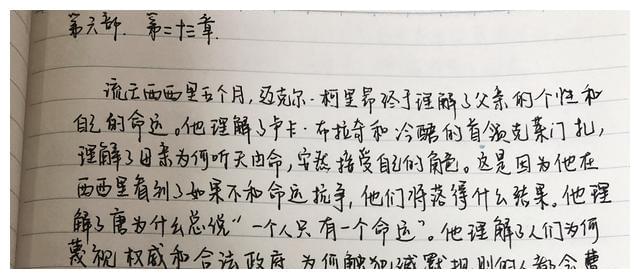 第六部. 第二十三章.
流亡西西里五个月,迈克尔·柯里昂终于理解了父亲的个性和
自己的命运。他理解了卢卡·布拉奇和冷酷的首领克莱门扎,
理解了母亲为何听天由命,安然接受自己的角色。这是因为他在
西西里看到了如果不和命运抗争,他们将落得什么结果。他理
解了唐为什么总说“一个人只有一个命运”。他理解了人们为何
蔑视权威和合法政府,为何触犯缄默规则的人都会遭